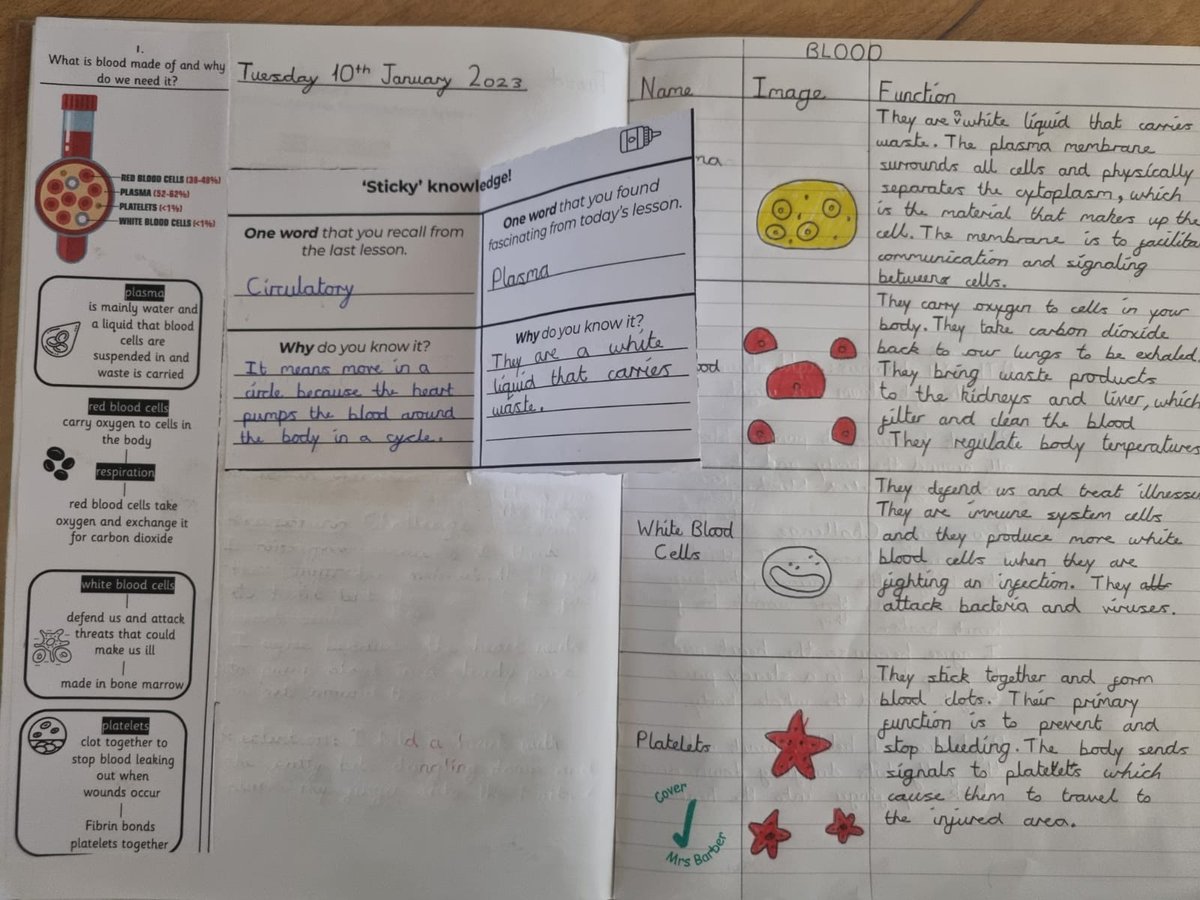 1.
What is blood made of and why
do we need it?
RED BLOOD CELLS (38-48%)
PLASMA (52-62%)
PLATELETS (<1%)
WHITE BLOOD CELLS (<1%)
plasma
is mainly water and
a liquid that blood
cells are
suspended in and
waste is carried
red blood cells
carry oxygen to cells in
the body
respiration
red blood cells take
oxygen and exchange it
for carbon dioxide
white blood cells
defend us and attack
threats that could
make us ill
made in bone marrow
platelets
clot together to
stop blood leaking
out when
wounds occur
Fibrin bonds
platelets together
Tuesday 10th January 2023
'Sticky' knowledge!
One word that you recall from
the last lesson.
Circulatory
Why do you know it?
It means move in a
circle because the heart
pumps the blood around
the body in a cycle.
One word that you found
fascinating from today's lesson.
Plasma
Why do you know it?
They are a white
liquid that carries
waste.
BLOOD
Name
Image
Function
ma
They are a white liquid that carries
waste. The plasma membrane
surrounds all cells and physically
separates the cytoplasm, which
is the material that makes up the
cell. The membrane is to facilita
communication and signaling
between cells.
ood
They carry oxygen to cells in your
body. They take carbon dioxide
back to our lungs to be exhaled
They bring waste products
to the kidneys and liver, which
filter and clean the blood
They regulate body temperatures
White Blood
Cells
They defend us and treat illnesses
They are immune system cells
and they produce more white
blood cells when they are
fighting an infection. They
attack bacteria and viruses.
Platelets
They stick together and form
blood clots. Their primary
function is to prevent and
stop bleeding. The body sends
signals to platelets which
cause them to travel to
the injured area.
Cover
Mrs Barber